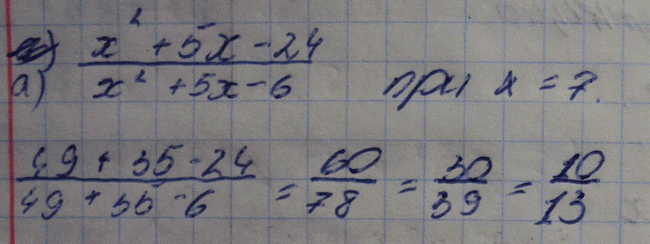 а) x² + 5x - 24 / x² + 5x - 6 при x = 7.
49 + 35 - 24 / 49 + 35 - 6 = 60/78 = 30/39 = 10/13